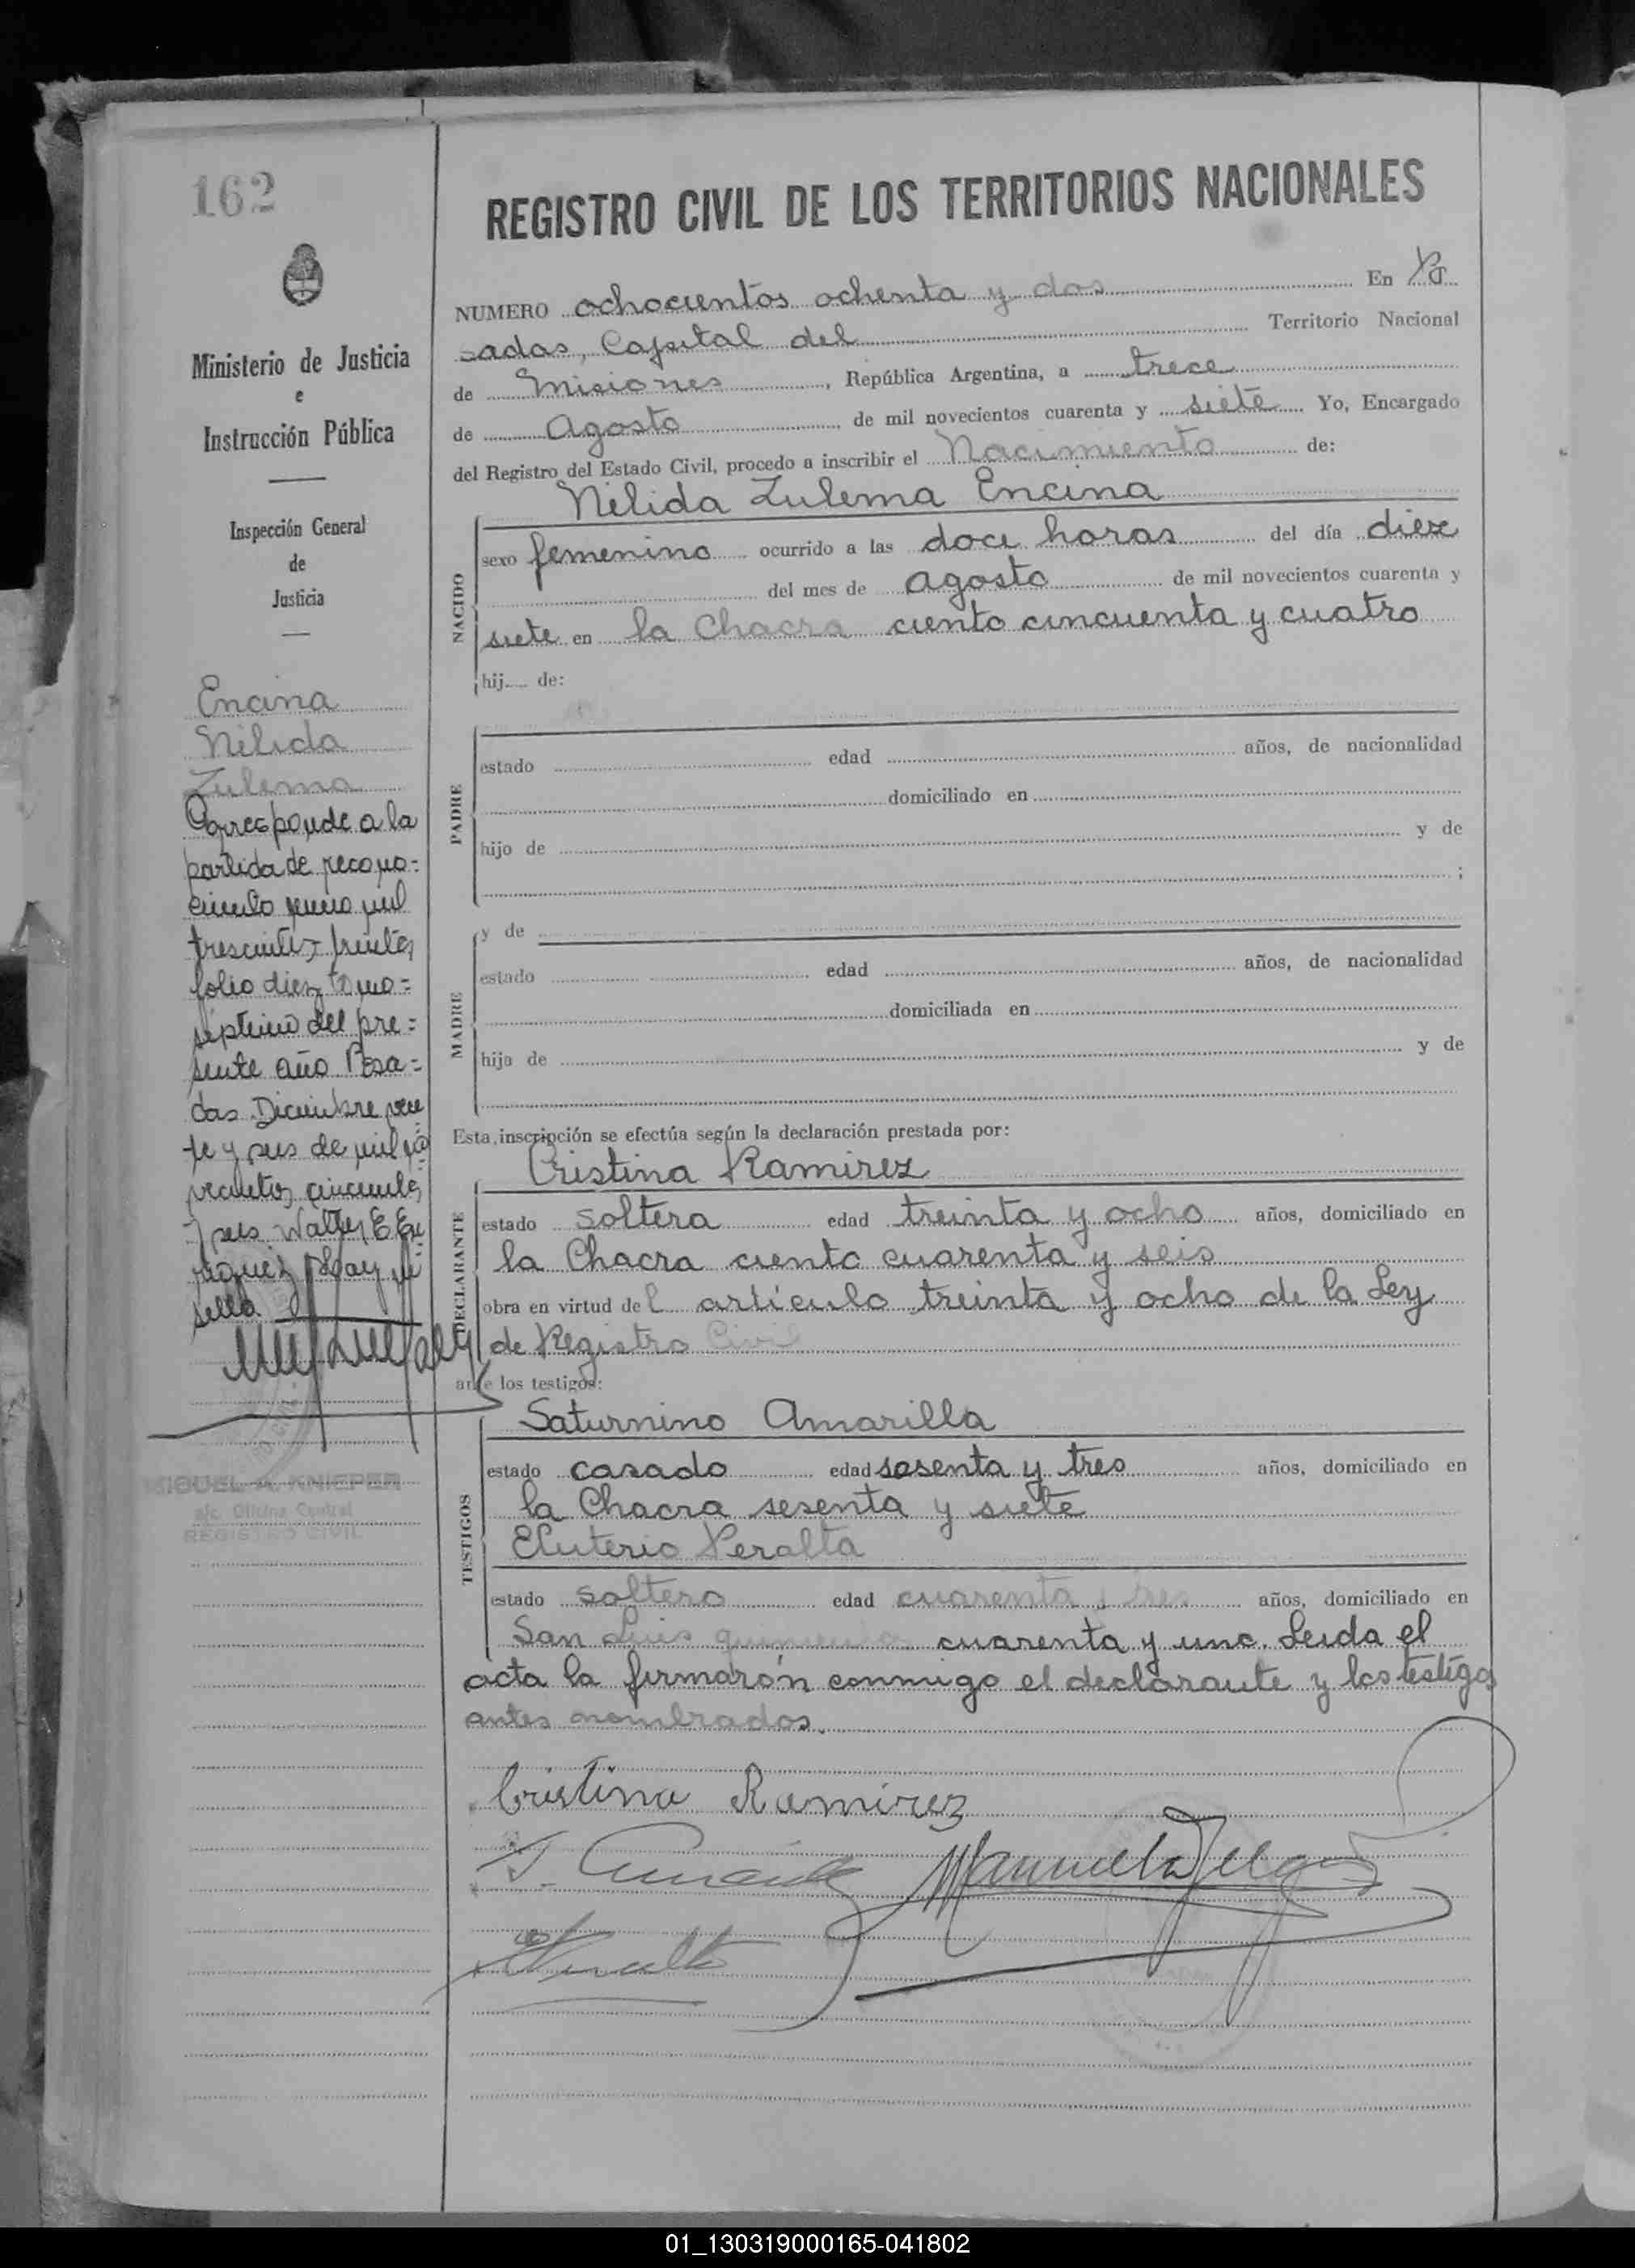 162
Ministerio de Justicia
e
Instrucción Pública
Inspección General
de
Justicia
Encina
Nélida
Zulema
Corresponde a la
partida de recono=
cimiento numo mil
trescientos treinta,
folio diez tomo=
séptimo del pre=
sente año. Posa=
das Diciembre vein
te y seis de mil no
vecientos cincuenta
y seis. Walter E.
Hay un
sello
MIGUEL A. KNIEPER
a/c. Oficina Central
REGISTRO CIVIL
REGISTRO CIVIL DE LOS TERRITORIOS NACIONALES
NUMERO ochocientos ochenta y dos En Po
sadas, Capital del Territorio Nacional
de Misiones, República Argentina, a trece
de Agosto de mil novecientos cuarenta y siete Yo, Encargado
del Registro del Estado Civil, procedo a inscribir el Nacimiento de:
Nélida Zulema Encina
NACIDO
sexo femenino ocurrido a las doce horas del día diez
del mes de agosto de mil novecientos cuarenta y
siete en la Chacra ciento cincuenta y cuatro
hij.... de:
PADRE
estado edad años, de nacionalidad
domiciliado en
hijo de y de
;
y de
MADRE
estado edad años, de nacionalidad
domiciliada en
hija de y de
Esta inscripción se efectúa según la declaración prestada por:
Cristina Ramirez
DECLARANTE
estado soltera edad treinta y ocho años, domiciliado en
la Chacra ciento cuarenta y seis
obra en virtud del artículo treinta y ocho de la Ley
de Registro Civil
ante los testigos:
Saturnino Amarilla
TESTIGOS
estado casado edad sesenta y tres años, domiciliado en
la Chacra sesenta y siete
Eluterio Peralta
estado soltero edad cuarenta y tres años, domiciliado en
San Luis quinientos cuarenta y uno. Leida el
acta la firmarón conmigo el declarante y los testigos
antes nombrados.
Cristina Ramirez
01_130319000165-041802